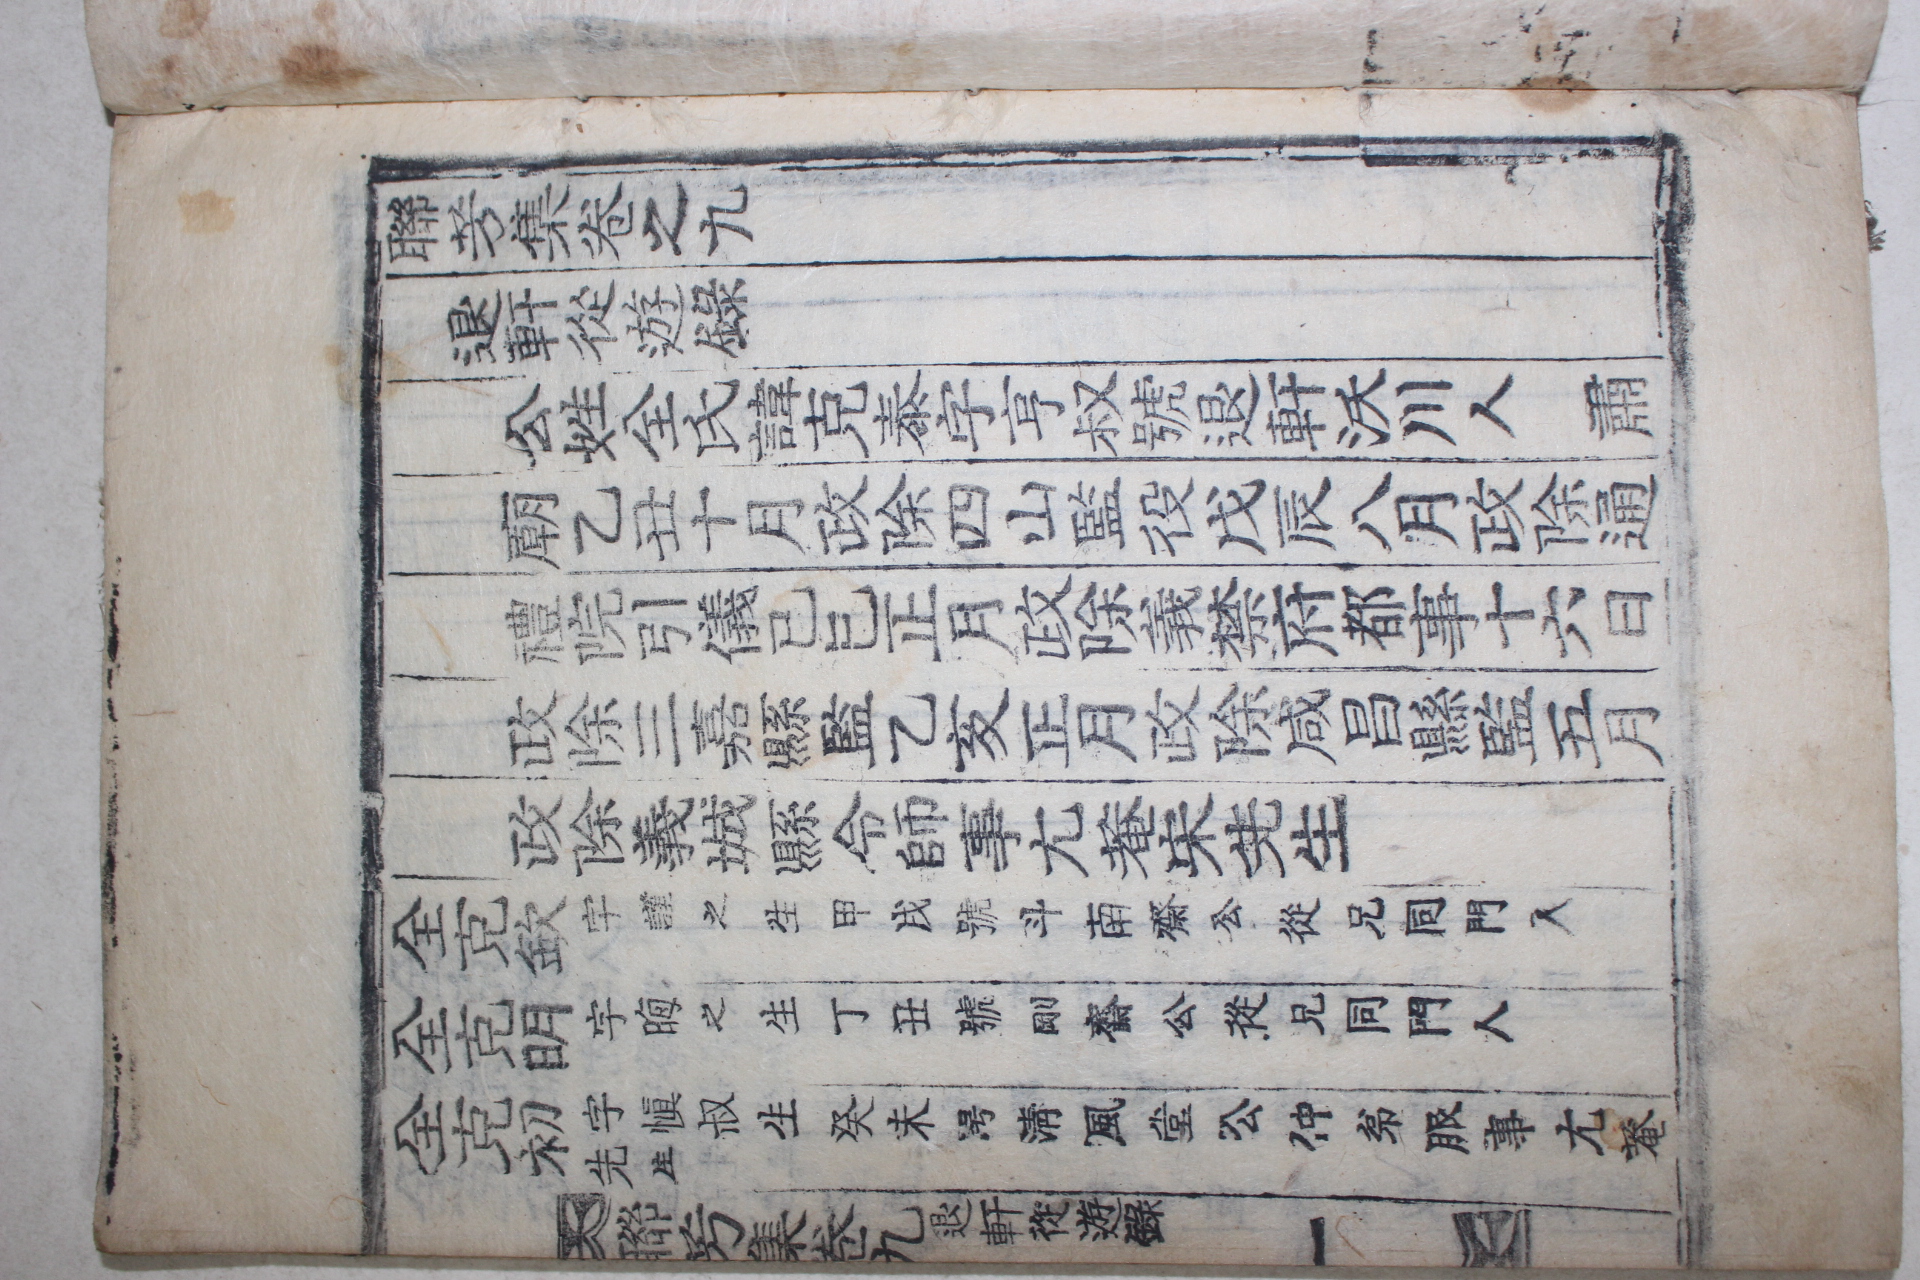 聯芳集卷之九
退軒從遊錄
公姓全氏諱克泰字亨叔號退軒沃川人　肅
廟乙丑十月政除四山監役戊辰八月政除通
禮院引儀已巳正月政除義禁府都事十六日
政除三嘉縣監乙亥正月政除咸昌縣監五月
政除義城縣令師事尤菴宋先生
全克欽字謹之生甲戌號斗南齋公從兄同門人
全克明字晦之生丁丑號剛齋公從兄同門人
全克初字愼叔生癸未号淸風堂公仲弟服事尤菴
先生
聯芳集卷九 退軒從遊錄 一